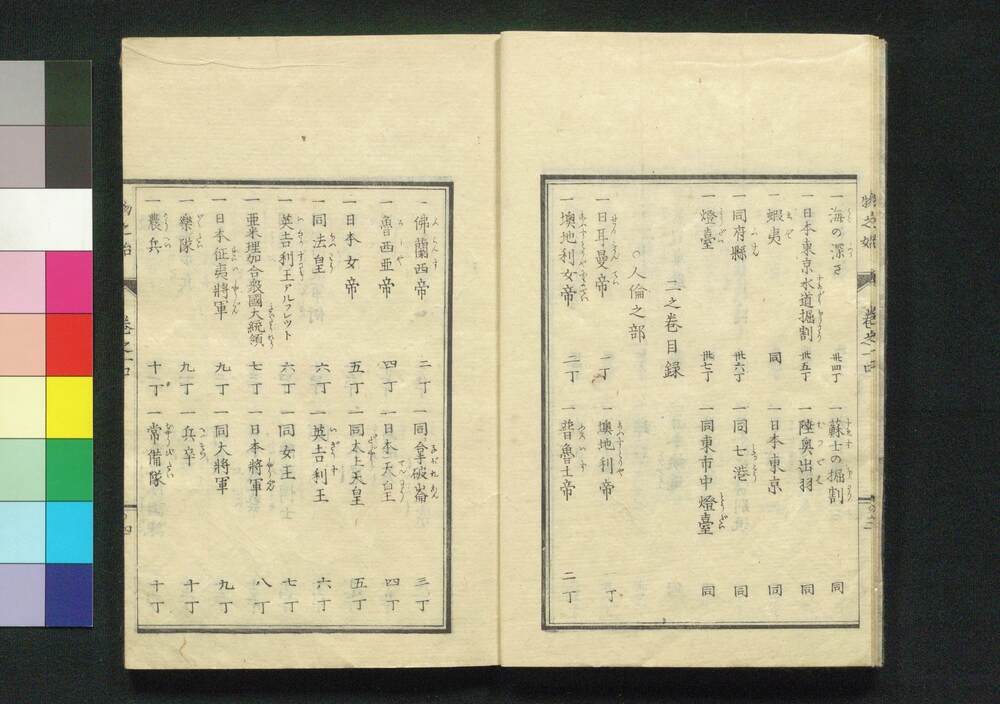 一海の深さ 卅四丁
一蘇士の掘割 同
一日本東京水道掘割 卅五丁
一陸奥出羽 同
一蝦夷 同
一日本東京 同
一同府縣 卅六丁
一同七港 同
一燈臺 卅七丁
一同東市中燈臺 同
二之巻目録
○人倫之部
一日耳曼帝 一丁
一墺地利帝 一丁
一墺地利女帝 二丁
一普魯士帝 二丁
一佛蘭西帝 二丁
一同拿破崙 三丁
一魯西亜帝 四丁
一日本天皇 四丁
一日本女帝 五丁
一同太上天皇 五丁
一同法皇 六丁
一英吉利王 六丁
一英吉利王アルフレット 六丁
一同女王 七丁
一亜米理加合衆國大統領 七丁
一日本將軍 八丁
一日本征夷將軍 九丁
一同大將軍 九丁
一樂隊 九丁
一兵卒 十丁
一農兵 十丁
一常備隊 十丁